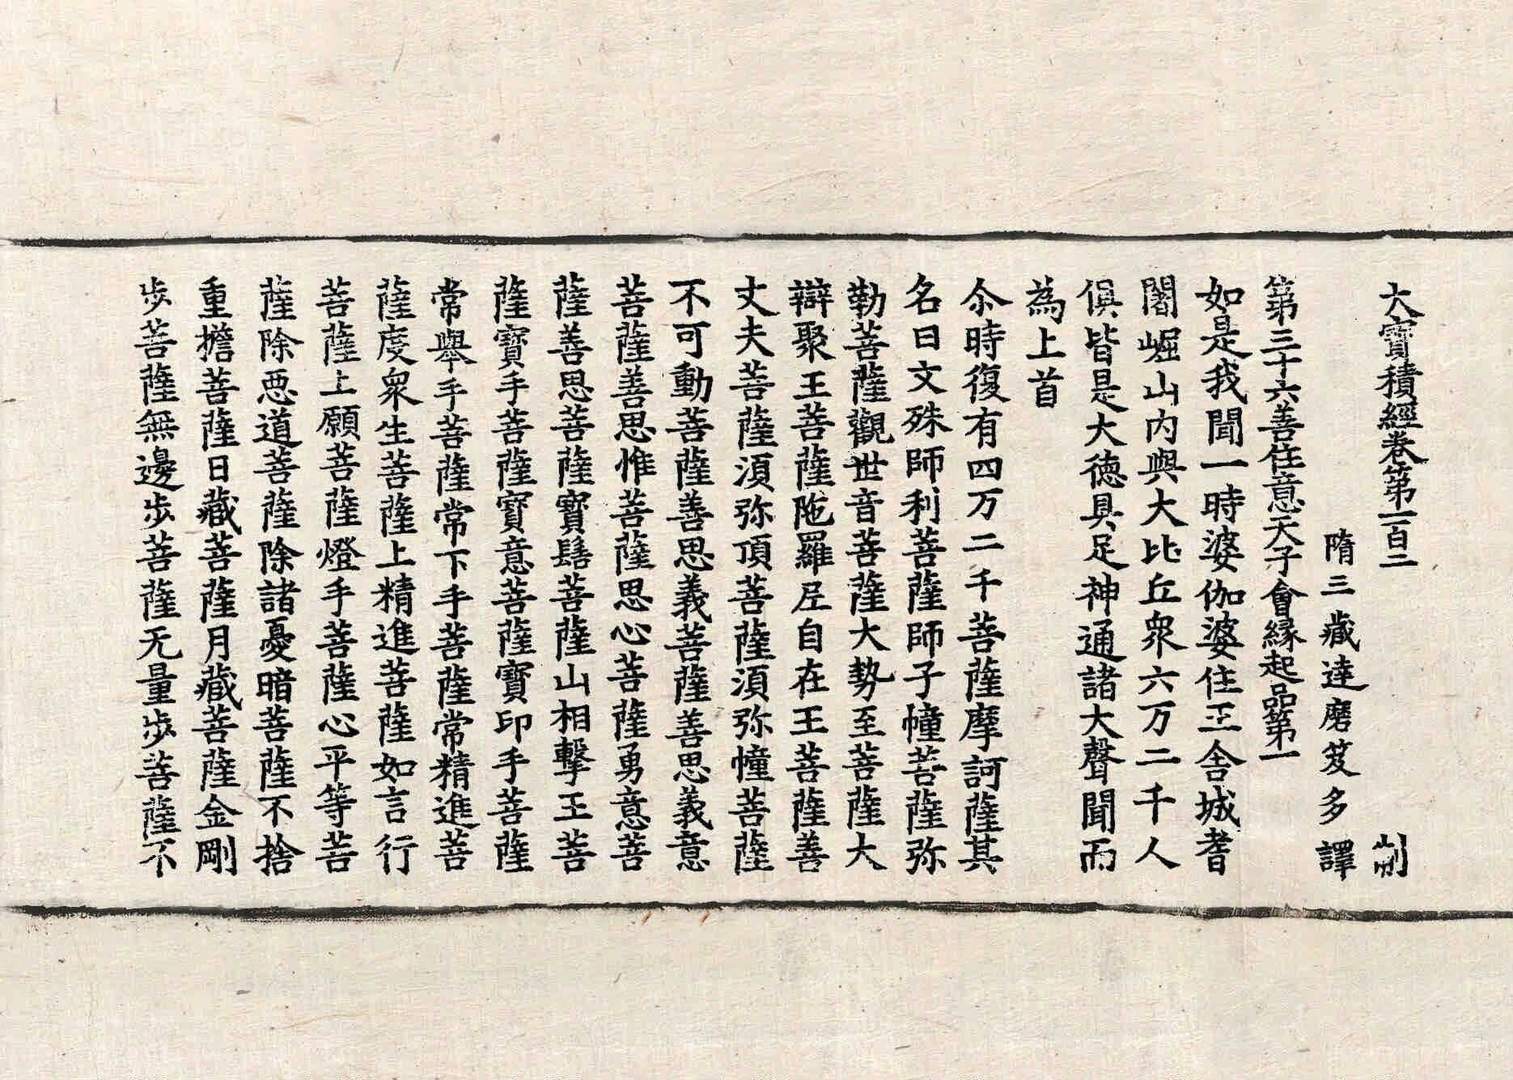 大寶積經卷第一百二 制
隋三藏達磨笈多 譯
第三十六善住意天子會緣起品第一
如是我聞一時婆伽婆住王舍城耆
闍崛山内與大比丘衆六万二千人
俱皆是大德具足神通諸大聲聞而
為上首
尒時復有四万二千菩薩摩訶薩其
名曰文殊師利菩薩師子幢菩薩弥
勒菩薩觀世音菩薩大勢至菩薩大
辯聚王菩薩陁羅尼自在王菩薩善
丈夫菩薩湏弥頂菩薩湏弥幢菩薩
不可動菩薩善思義菩薩善思義意
菩薩善思惟菩薩思心菩薩勇意菩
薩善思菩薩寶髻菩薩山相擊王菩
薩寶手菩薩寶意菩薩寶印手菩薩
常舉手菩薩常下手菩薩常精進菩
薩度衆生菩薩上精進菩薩如言行
菩薩上願菩薩燈手菩薩心平等菩
薩除惡道菩薩除諸憂暗菩薩不捨
重擔菩薩日藏菩薩月藏菩薩金剛
步菩薩無邊步菩薩无量步菩薩不